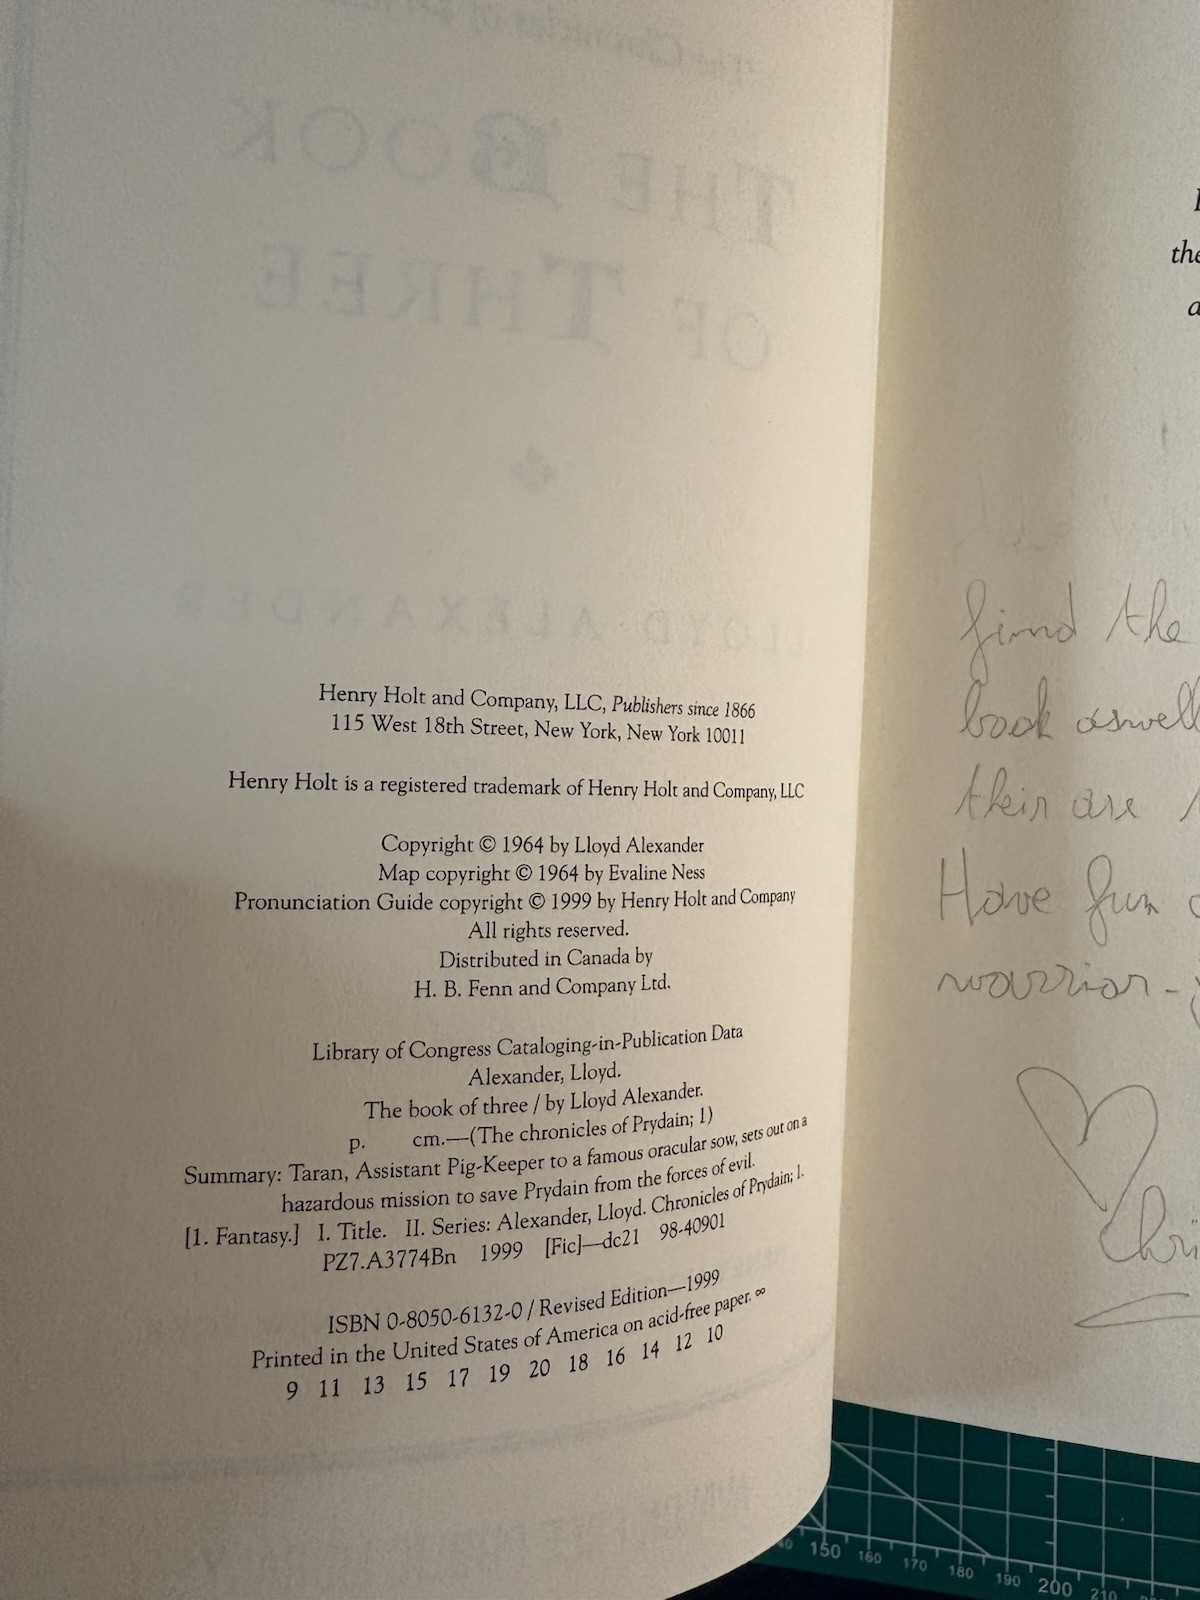 THE BOOK
OF THREE
LLOYD ALEXANDER
Henry Holt and Company, LLC, Publishers since 1866
115 West 18th Street, New York, New York 10011
Henry Holt is a registered trademark of Henry Holt and Company, LLC
Copyright © 1964 by Lloyd Alexander
Map copyright © 1964 by Evaline Ness
Pronunciation Guide copyright © 1999 by Henry Holt and Company
All rights reserved.
Distributed in Canada by
H. B. Fenn and Company Ltd.
Library of Congress Cataloging-in-Publication Data
Alexander, Lloyd.
The book of three / by Lloyd Alexander.
p. cm.—(The chronicles of Prydain; 1)
Summary: Taran, Assistant Pig-Keeper to a famous oracular sow, sets out on a
hazardous mission to save Prydain from the forces of evil.
[1. Fantasy.] I. Title. II. Series: Alexander, Lloyd. Chronicles of Prydain; 1.
PZ7.A3774Bn 1999 [Fic]—dc21 98-40901
ISBN 0-8050-6132-0 / Revised Edition—1999
Printed in the United States of America on acid-free paper. ∞
9 11 13 15 17 19 20 18 16 14 12 10
the
find the
book aswell
their are
Have fun
warrior-
150 160 170 180 190 200 210